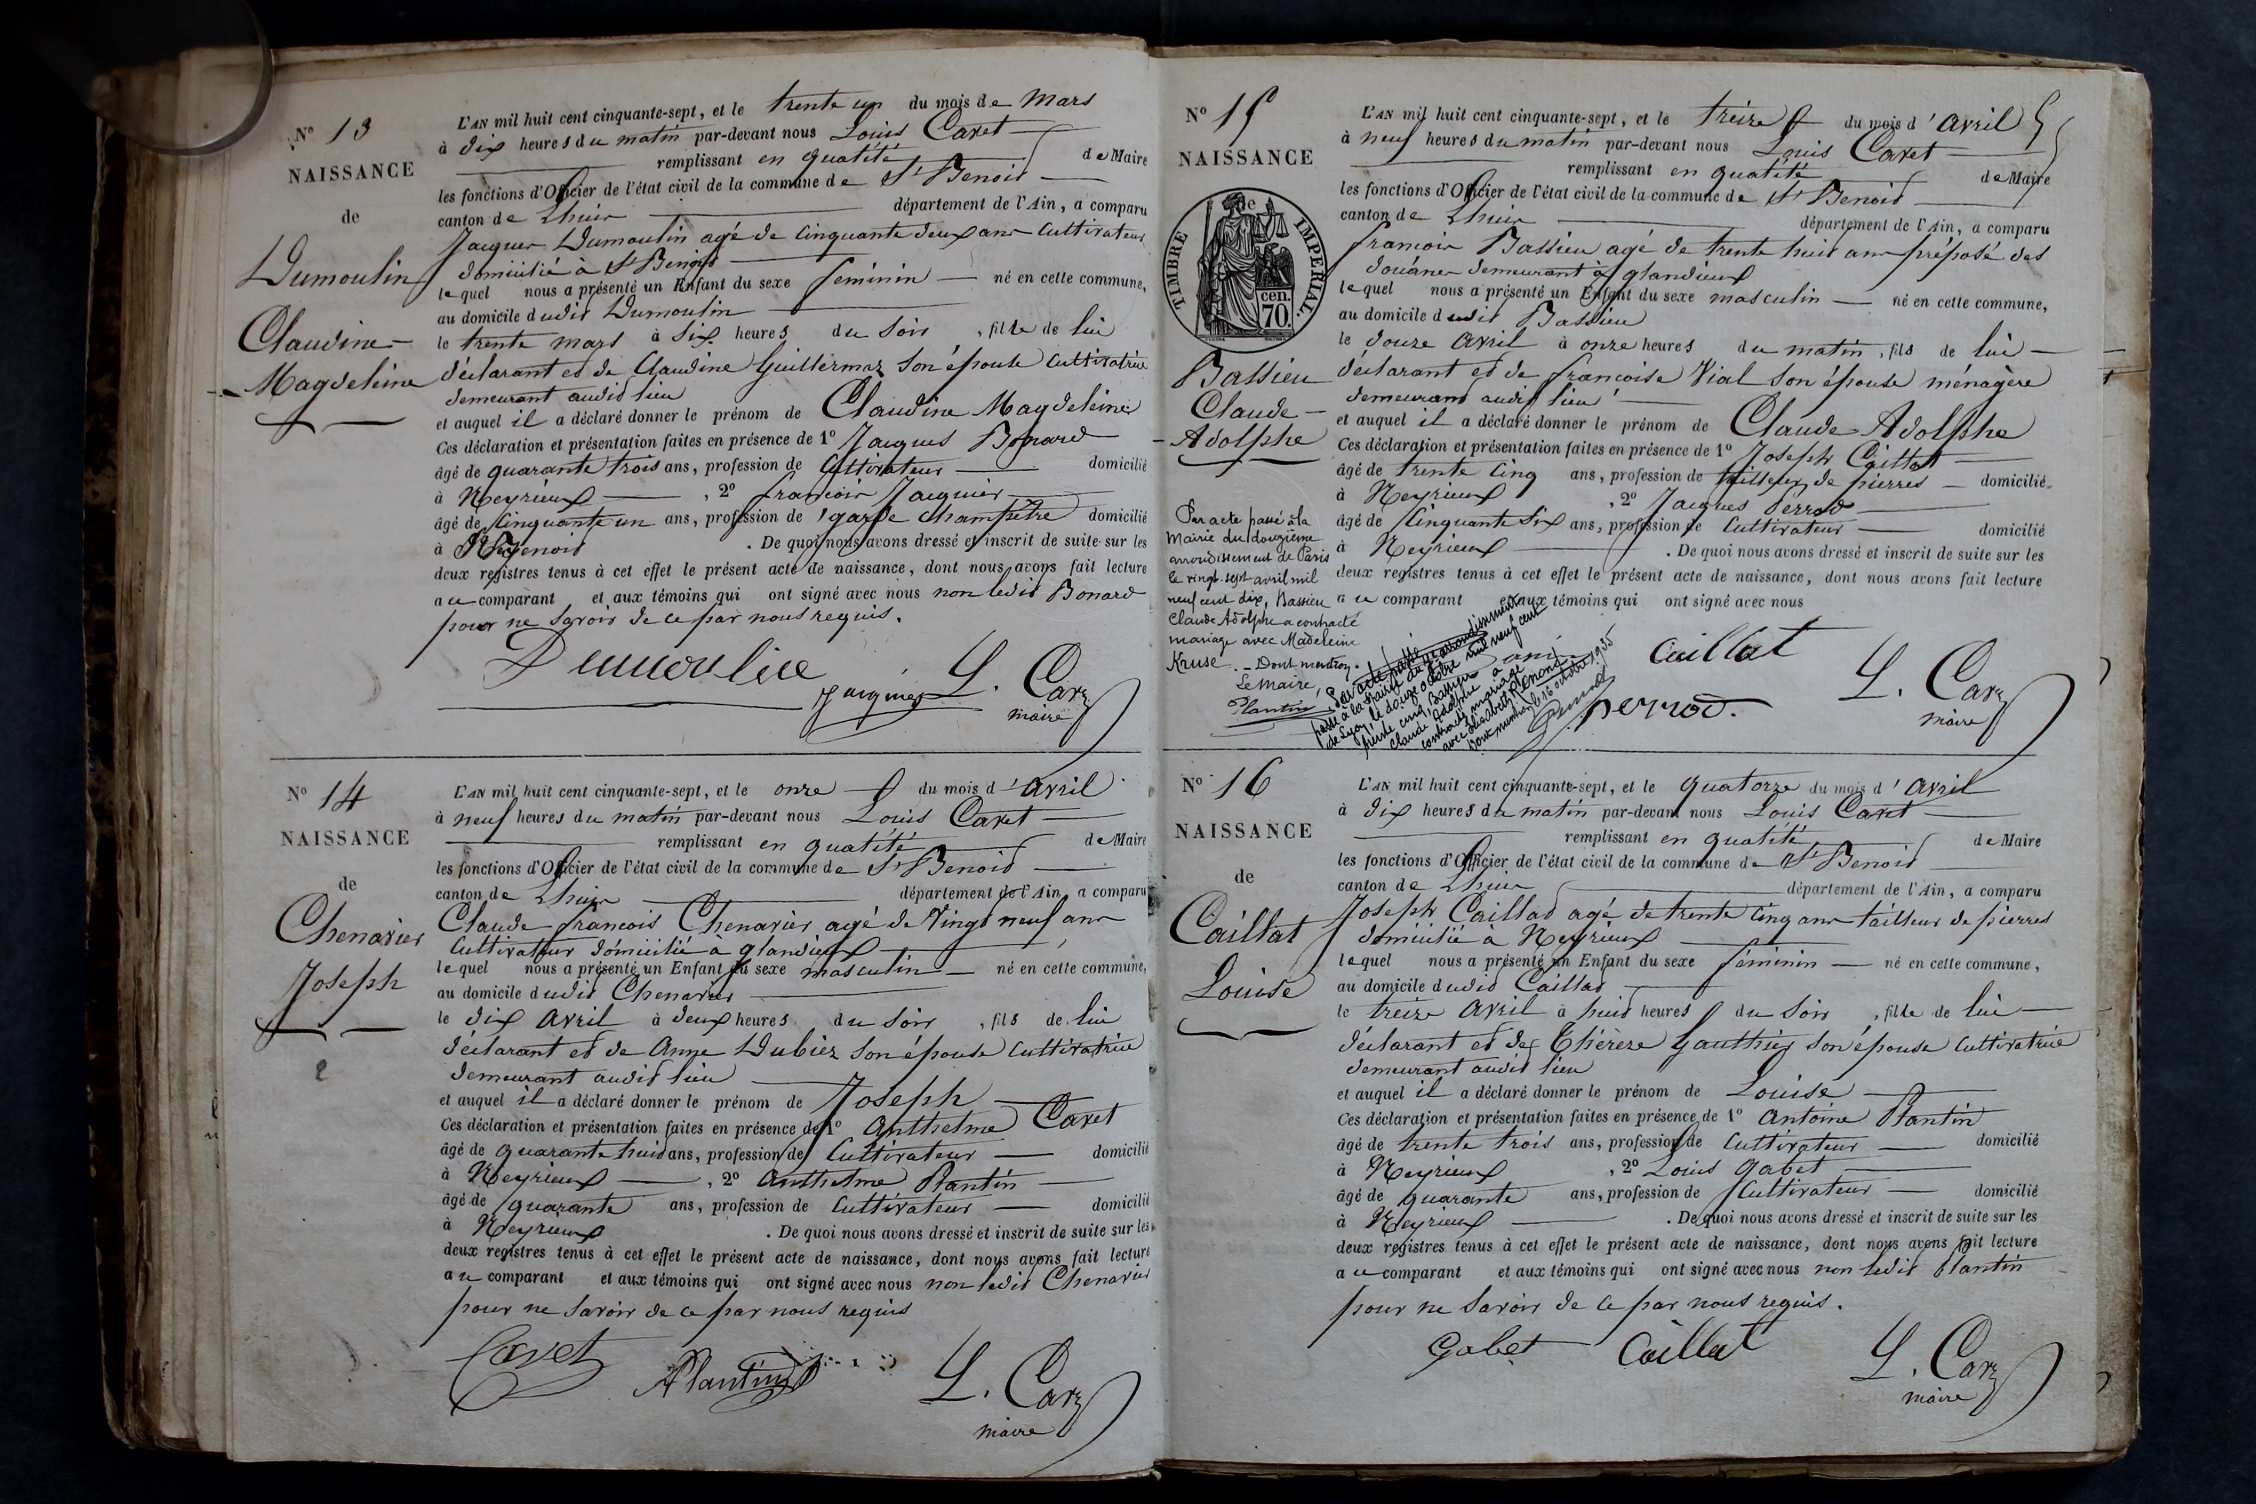 N° 13
NAISSANCE
de
Dumoulin
Claudine
Magdeleine
L'AN mil huit cent cinquante-sept, et le trente un du mois de Mars
à dix heures du matin par-devant nous Louis Cavet
remplissant en qualité de Maire
les fonctions d'Officier de l'état civil de la commune de St Benoid
canton de Lhuir département de l'Ain, a comparu
Jacques Dumoulin agé de cinquante deux ans cultivateur
domicilié à St Benoid
lequel nous a présenté un Enfant du sexe féminin né en cette commune,
au domicile dudit Dumoulin
le trente mars à six heures du soir, fille de lui
déclarant et de Claudine Guillermaz son épouse cultivatrice
demeurant audit lieu
et auquel il a déclaré donner le prénom de Claudine Magdeleine
Ces déclaration et présentation faites en présence de 1° Jacques Bonard
âgé de quarante trois ans, profession de cultivateur domicilié
à Neyrieux, 2° françois Jacquier
âgé de cinquante un ans, profession de garde champêtre domicilié
à St Benoid. De quoi nous avons dressé et inscrit de suite sur les
deux registres tenus à cet effet le présent acte de naissance, dont nous avons fait lecture
au comparant et aux témoins qui ont signé avec nous non ledit Bonard
pour ne savoir de ce par nous requis.
Dumoulin Jacquier L. Cavet
maire
N° 14
NAISSANCE
de
Chenavier
Joseph
2
L'AN mil huit cent cinquante-sept, et le onze du mois d'avril
à neuf heures du matin par-devant nous Louis Cavet
remplissant en qualité de Maire
les fonctions d'Officier de l'état civil de la commune de St Benoid
canton de Lhuir département de l'Ain, a comparu
Claude francois Chenavier agé de vingt neuf ans
cultivateur domicilié à glandieux
lequel nous a présenté un Enfant du sexe masculin né en cette commune,
au domicile dudit Chenavier
le dix avril à deux heures du soir, fils de lui
déclarant et de Anne Dubiez son épouse cultivatrice
demeurant audit lieu
et auquel il a déclaré donner le prénom de Joseph
Ces déclaration et présentation faites en présence de 1° Anthelme Cavet
âgé de quarante huit ans, profession de cultivateur domicilié
à Neyrieux, 2° anthelme Plantin
âgé de quarante ans, profession de cultivateur domicilié
à Neyrieux. De quoi nous avons dressé et inscrit de suite sur les
deux registres tenus à cet effet le présent acte de naissance, dont nous avons fait lecture
au comparant et aux témoins qui ont signé avec nous non ledit Chenavier
pour ne savoir de ce par nous requis
Cavet A Plantin L. Cavet
maire
N° 15
NAISSANCE
de
TIMBRE IMPERIAL.
70. cen.
Bassieu
Claude
Adolphe
Par acte passé à la
Mairie du douzième
arrondissement de Paris
le vingt-sept avril mil
neuf cent dix, Bassieu
Claude Adolphe a contracté
mariage avec Madeleine
Kruse. - Dont mention.
Le Maire,
Plantin
Par acte passé
passé à la Mairie du arrondissement
de Lyon, le douze octobre mil neuf cent
trente cinq, Bassieu
Claude Adolphe a
contracté mariage
avec
Dont mention, le 16 octobre 1935
L'AN mil huit cent cinquante-sept, et le treize du mois d'avril
à neuf heures du matin par-devant nous Louis Cavet
remplissant en qualité de Maire
les fonctions d'Officier de l'état civil de la commune de St Benoid
canton de Lhuir département de l'Ain, a comparu
francois Bassieu agé de trente huit ans préposé des
douânes demeurant à glandieux
lequel nous a présenté un Enfant du sexe masculin né en cette commune,
au domicile dudit Bassieu
le douze avril à onze heures du matin, fils de lui
déclarant et de francoise Vial son épouse ménagère
demeurant audit lieu
et auquel il a déclaré donner le prénom de Claude Adolphe
Ces déclaration et présentation faites en présence de 1° Joseph Caillat
âgé de trente cinq ans, profession de tailleur de pierres domicilié
à Neyrieux, 2° Jacques Perrod
âgé de cinquante six ans, profession de cultivateur domicilié
à Neyrieux. De quoi nous avons dressé et inscrit de suite sur les
deux registres tenus à cet effet le présent acte de naissance, dont nous avons fait lecture
au comparant et aux témoins qui ont signé avec nous
Caillat L. Cavet
perrod. maire
N° 16
NAISSANCE
de
Caillat
Louise
L'AN mil huit cent cinquante-sept, et le quatorze du mois d'avril
à dix heures du matin par-devant nous Louis Cavet
remplissant en qualité de Maire
les fonctions d'Officier de l'état civil de la commune de St Benoid
canton de Lhuir département de l'Ain, a comparu
Joseph Caillat agé de trente cinq ans tailleur de pierres
domicilié à Neyrieux
lequel nous a présenté un Enfant du sexe féminin né en cette commune,
au domicile dudit Caillat
le treize avril à huit heures du soir, fille de lui
déclarant et de Thérèze Gauthier son épouse cultivatrice
demeurant audit lieu
et auquel il a déclaré donner le prénom de Louise
Ces déclaration et présentation faites en présence de 1° Antoine Plantin
âgé de trente trois ans, profession de cultivateur domicilié
à Neyrieux, 2° Louis Gabet
âgé de quarante ans, profession de cultivateur domicilié
à Neyrieux. De quoi nous avons dressé et inscrit de suite sur les
deux registres tenus à cet effet le présent acte de naissance, dont nous avons fait lecture
au comparant et aux témoins qui ont signé avec nous non ledit Plantin
pour ne savoir de ce par nous requis.
Gabet Caillat L. Cavet
maire